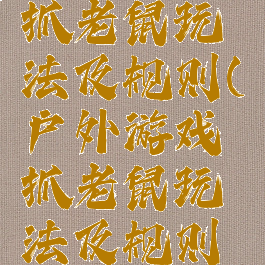 抓老鼠玩
法及规则(
户外游戏
抓老鼠玩
法及规则